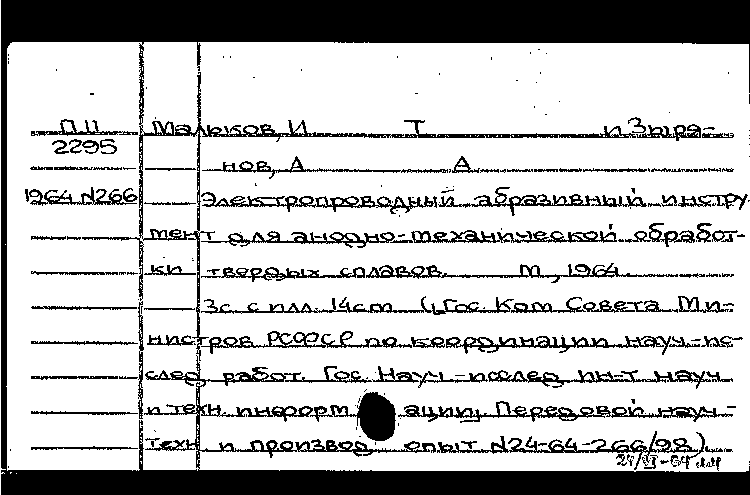 П.II Малыков, И Т и Зыря-
2295
нов, А А
1964 N266 Электропроводный абразивный инстру
мент для анодно-механической обработ-
ки твердых сплавов. М, 1964.
3с с илл. 14см (Гос. Ком Совета Ми-
нистров РСФСР по координации науч-ис-
след работ. Гос Науч-исслед ин-т науч
и техн. информации. Передовой науч-
техн и производ опыт N24-64-266/98).